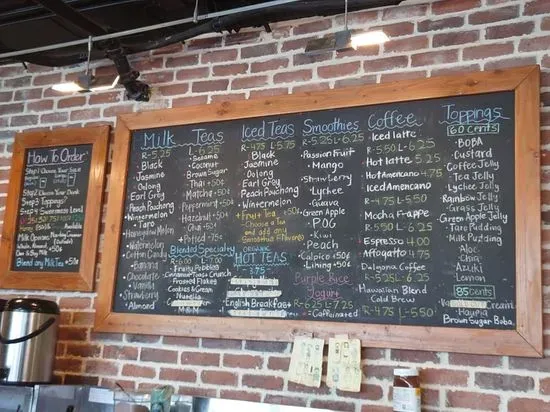 How To Order
Step 1 Choose Your Size
Step 2 Choose Your Drink
Step 3 Toppings?
Step 4 Sweetness Level
Milk Options
Blend any Milk Tea
Milk Teas
R-5.25 L-6.25
Black
Jasmine
Oolong
Earl Grey
Peach Pouchong
Wintermelon
Taro
Hawaiian Honey
Watermelon
Cotton Candy
Banana
Chocolate
Vanilla
Strawberry
Almond
Sesame
Coconut
Brown Sugar
Thai +50¢
Matcha +50¢
Peppermint
Hazelnut
Chai +50¢
Potted +75¢
Blended Specialty
R-6.00 L-7.00
Fruity Pebbles
Cinnamon Toast Crunch
Frosted Flakes
Cookies & Cream
Nutella
M&M
Iced Teas
R-4.75 L-5.75
Black
Jasmine
Oolong
Earl Grey
Peach Pouchong
Wintermelon
Fruit Tea +50¢
Choose a
Tea and
add any
Smoothie Flavor
ORGANIC
HOT TEAS
3.75
English Breakfast
Smoothies
R-5.25 L-6.25
Passion Fruit
Mango
Strawberry
Lychee
Guava
Green Apple
POG
Kiwi
Peach
Calpico +50¢
Lihing +50¢
Purple Rice
Yogurt
R-6.25 L-7.25
Caffeinated
Coffee
Iced latte
R-5.50 L-6.50
Hot latte 5.25
Hot Americano 4.75
Iced Americano
R-4.75 L-5.50
Mocha Frappe
R-5.50 L-6.50
Espresso 4.00
Affogatto 4.75
Dalgona Coffee
R-5.25 L-6.25
Hawaiian Blend
Cold Brew
R-4.75 L-5.50
Toppings
60 Cents
BOBA
Custard
Coffee Jelly
Tea Jelly
Lychee Jelly
Rainbow Jelly
Grass Jelly
Green Apple Jelly
Taro Pudding
Milk Pudding
Aloe
Chia
Azuki
Lemon
85 Cents
Cream
Haupia
Brown Sugar Boba